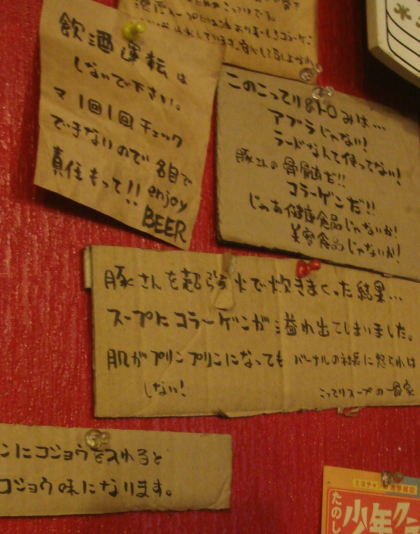 飲酒運転は
しないで下さい。
マ1回1回チェック
できないので各自で
責任もって!! enjoy
BEER
このこってり&トロみは…
アブラじゃない!
ラードなんて使ってない!
豚さんの骨髄だ!!
コラーゲンだ!!
じゃあ健康食品じゃないか!
美容食品じゃないか!
豚さんを超強火で炊きまくった結果…
スープにコラーゲンが溢れ出てしまいました。
肌がプリンプリンになっても バーナルの社長に怒られは
しない!
こってりスープの一番家
ンにコショウを入れると
コショウ味になります。
たのし
少年ク